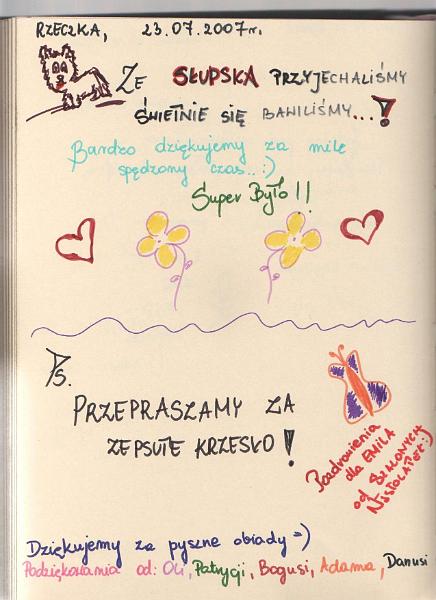 RZECZKA, 23.07.2007r.
ZE SŁUPSKA PRZYJECHALIŚMY
ŚWIETNIE SIĘ BAWILIŚMY...!
Bardzo dziękujemy za mile
spędzony czas..:)
Super Było!!
Ps.
PRZEPRASZAMY ZA
ZEPSUTE KRZESŁO!
Pozdrowienia
dla EMILA
od SZALONYCH
Dziękujemy za pyszne obiady =)
Podziękowania od: Oli, Patrycji, Bogusi, Adama, Danusi